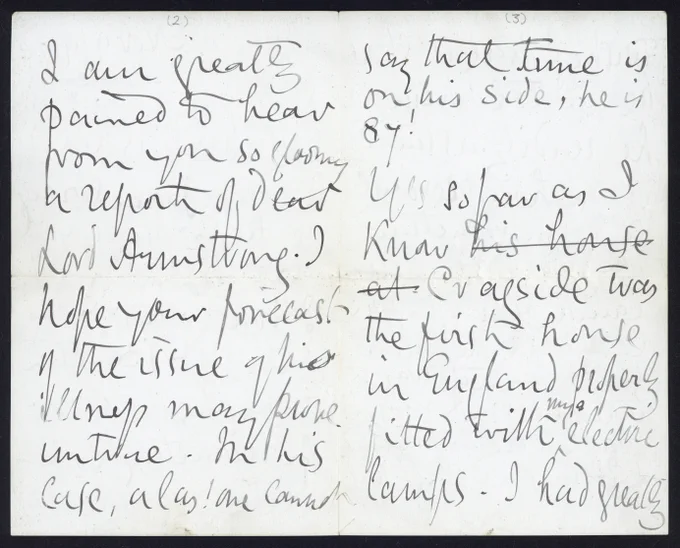 (2)
I am greatly
pained to hear
from you so gloomy
a report of dear
Lord Armstrong. I
hope your forecast
of the issue of his
illness may prove
untrue. In his
case, alas! one cannot
(3)
say that time is
on his side, he is
87!
Yes so far as I
know his house
at Cragside was
the first house
in England properly
fitted with my electric
lamps. I had greatly